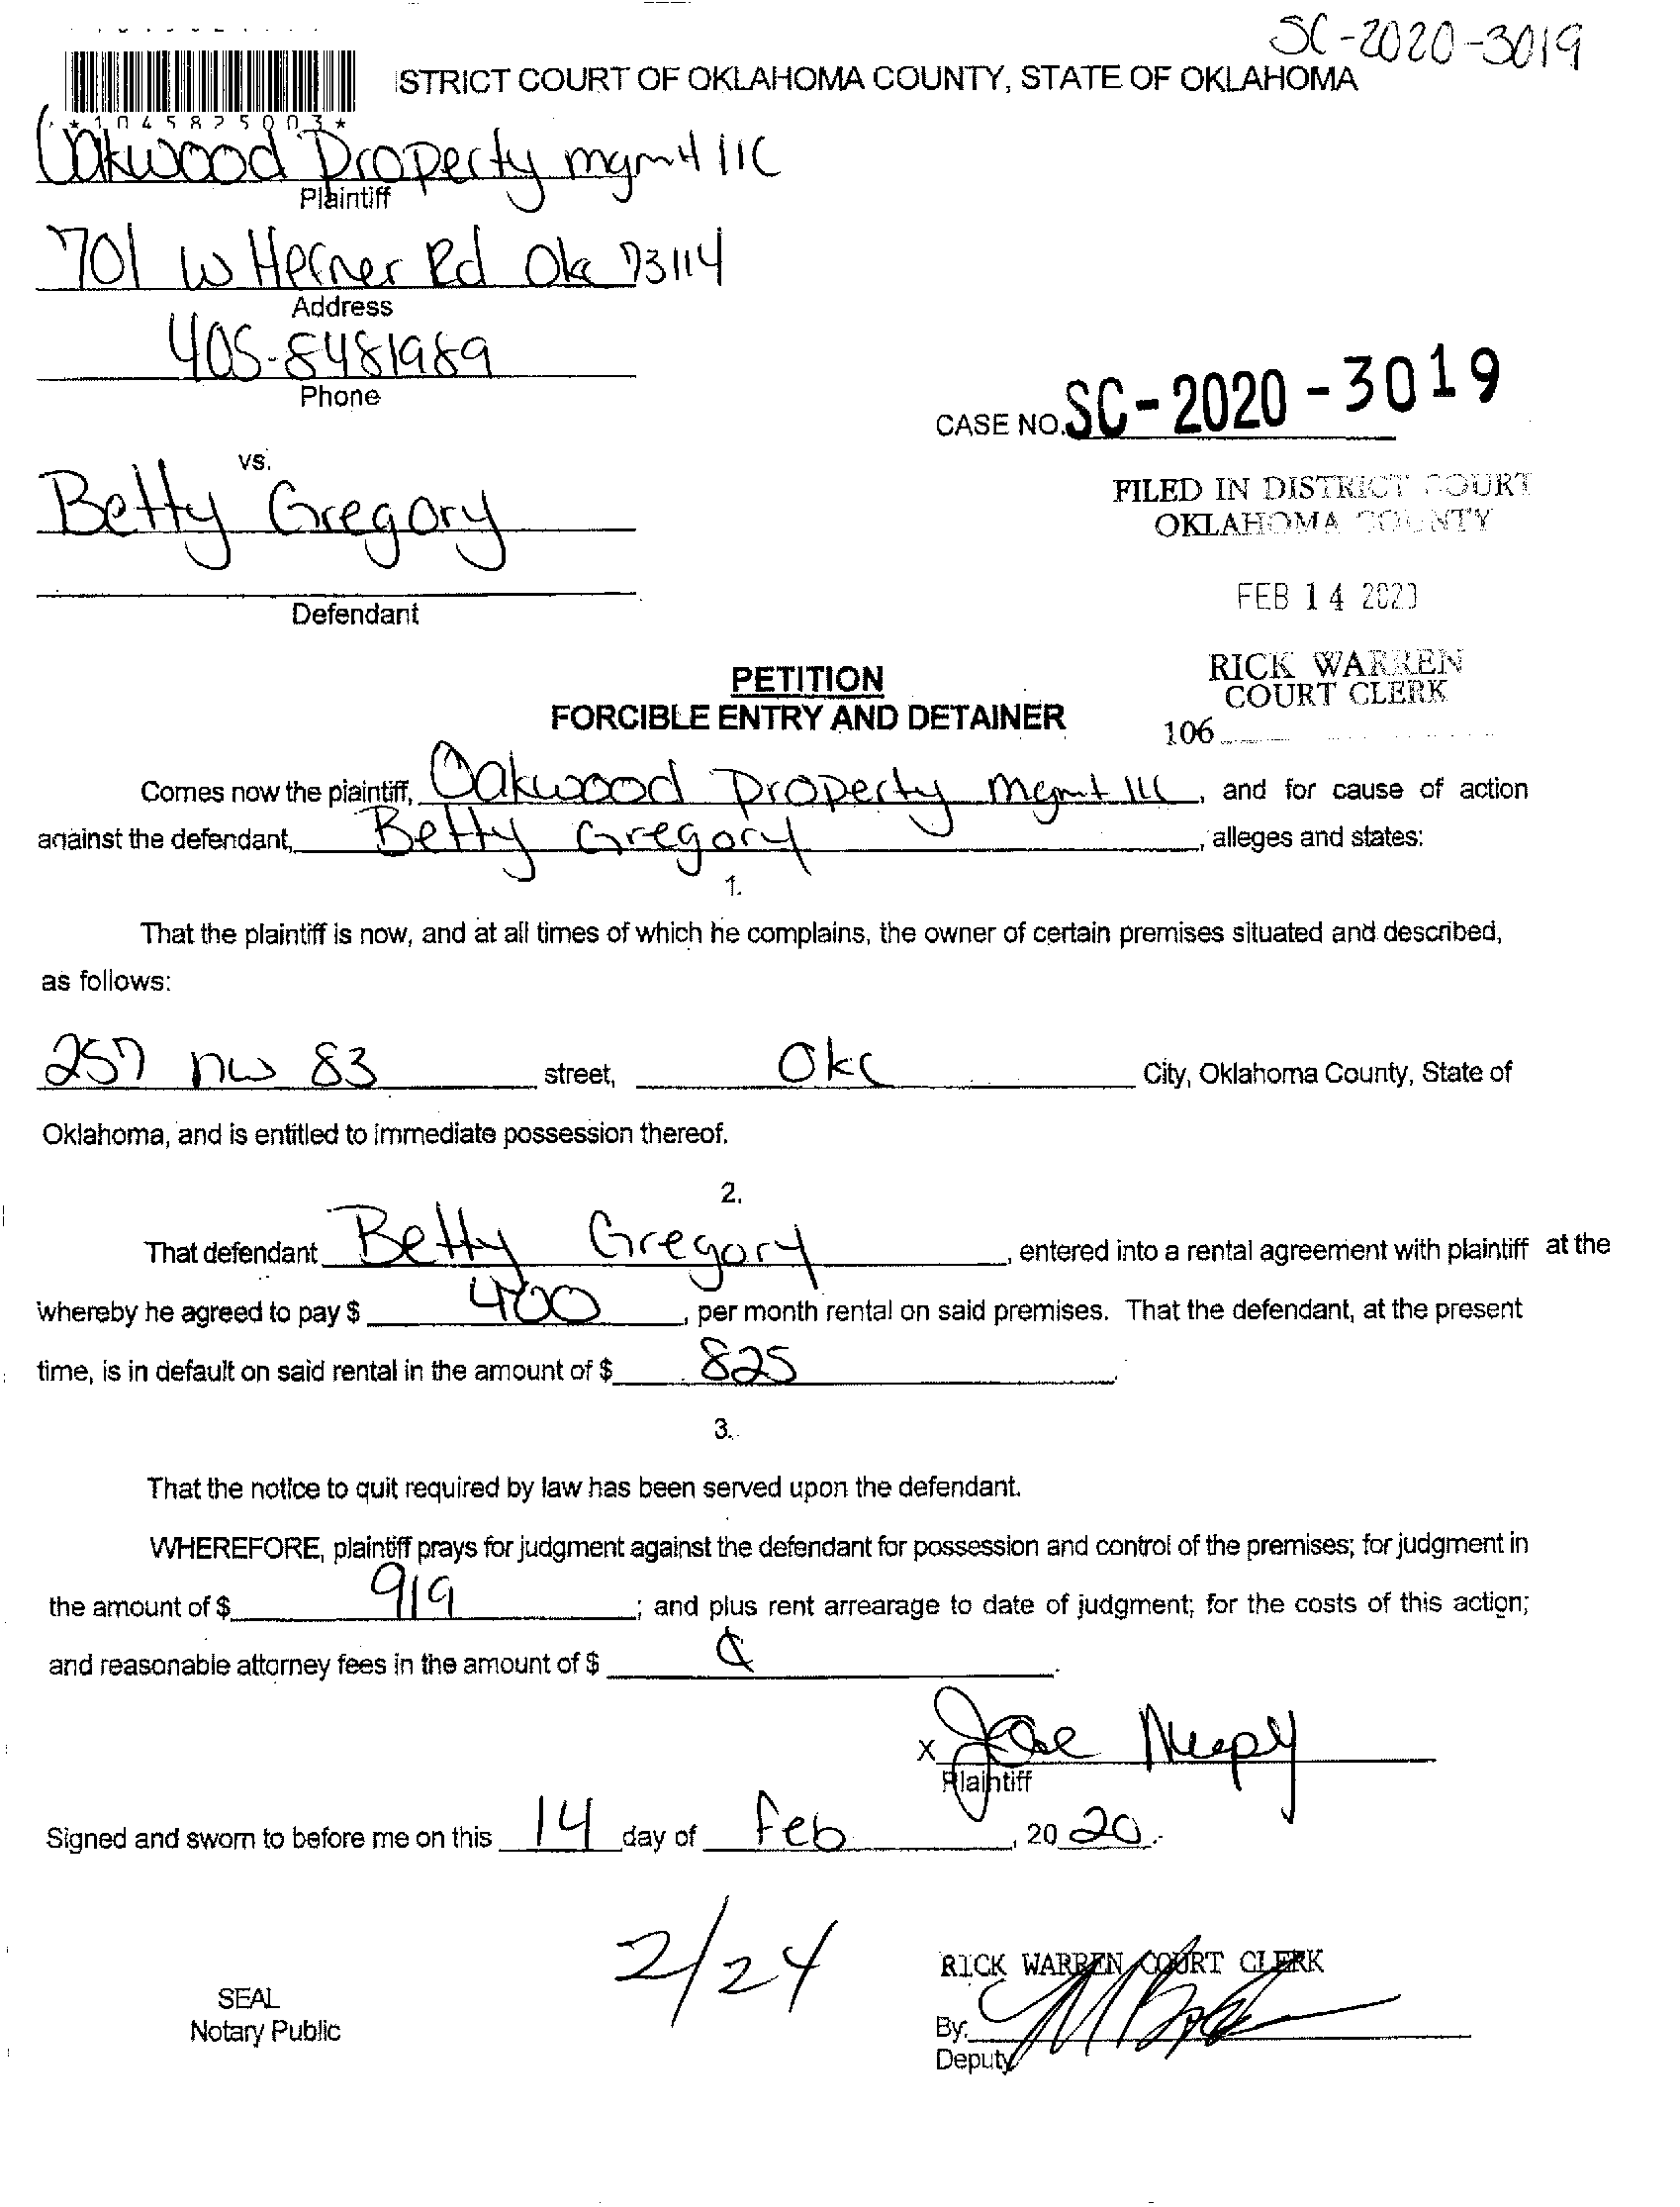 SC-2020-3019
ISTRICT COURT OF OKLAHOMA COUNTY, STATE OF OKLAHOMA
*1045825003*
Oakwood Property mgmt llC
Plaintiff
701 W Hefner Rd Okc 73114
Address
405-8481989
Phone
CASE NO. SC-2020-3019
vs.
Betty Gregory
FILED IN DISTRICT COURT
OKLAHOMA COUNTY
Defendant
FEB 14 2020
RICK WARREN
COURT CLERK
106
PETITION
FORCIBLE ENTRY AND DETAINER
Comes now the plaintiff, Oakwood Property Mgmt llC, and for cause of action
against the defendant, Betty Gregory, alleges and states:
1.
That the plaintiff is now, and at all times of which he complains, the owner of certain premises situated and described,
as follows:
257 nw 83 street, Okc City, Oklahoma County, State of
Oklahoma, and is entitled to immediate possession thereof.
2.
That defendant Betty Gregory, entered into a rental agreement with plaintiff at the
whereby he agreed to pay $ 400, per month rental on said premises. That the defendant, at the present
time, is in default on said rental in the amount of $ 825.
3.
That the notice to quit required by law has been served upon the defendant.
WHEREFORE, plaintiff prays for judgment against the defendant for possession and control of the premises; for judgment in
the amount of $ 919; and plus rent arrearage to date of judgment; for the costs of this action;
and reasonable attorney fees in the amount of $
x
Plaintiff
Signed and sworn to before me on this 14 day of Feb, 20 20.
2/24
RICK WARREN COURT CLERK
SEAL
Notary Public
By:
Deputy